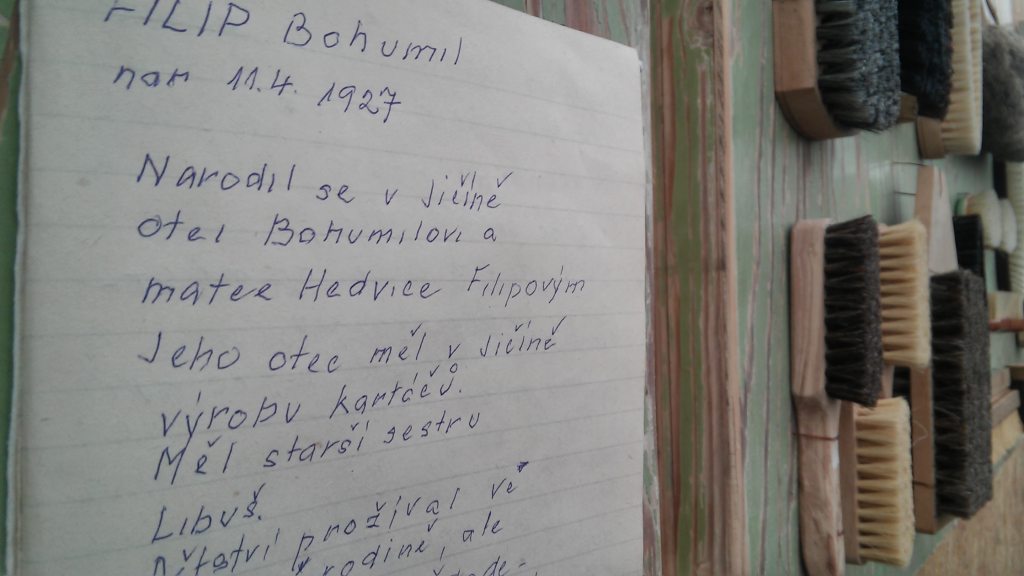 FILIP Bohumil
nar 11.4. 1927
Narodil se v Jičíně
otci Bohumilovi a
matce Hedvice Filipovým
Jeho otec měl v Jičíně
výrobu kartáčů.
Měl starší sestru
Libuš.
Dětství prožíval ve
rodině, ale